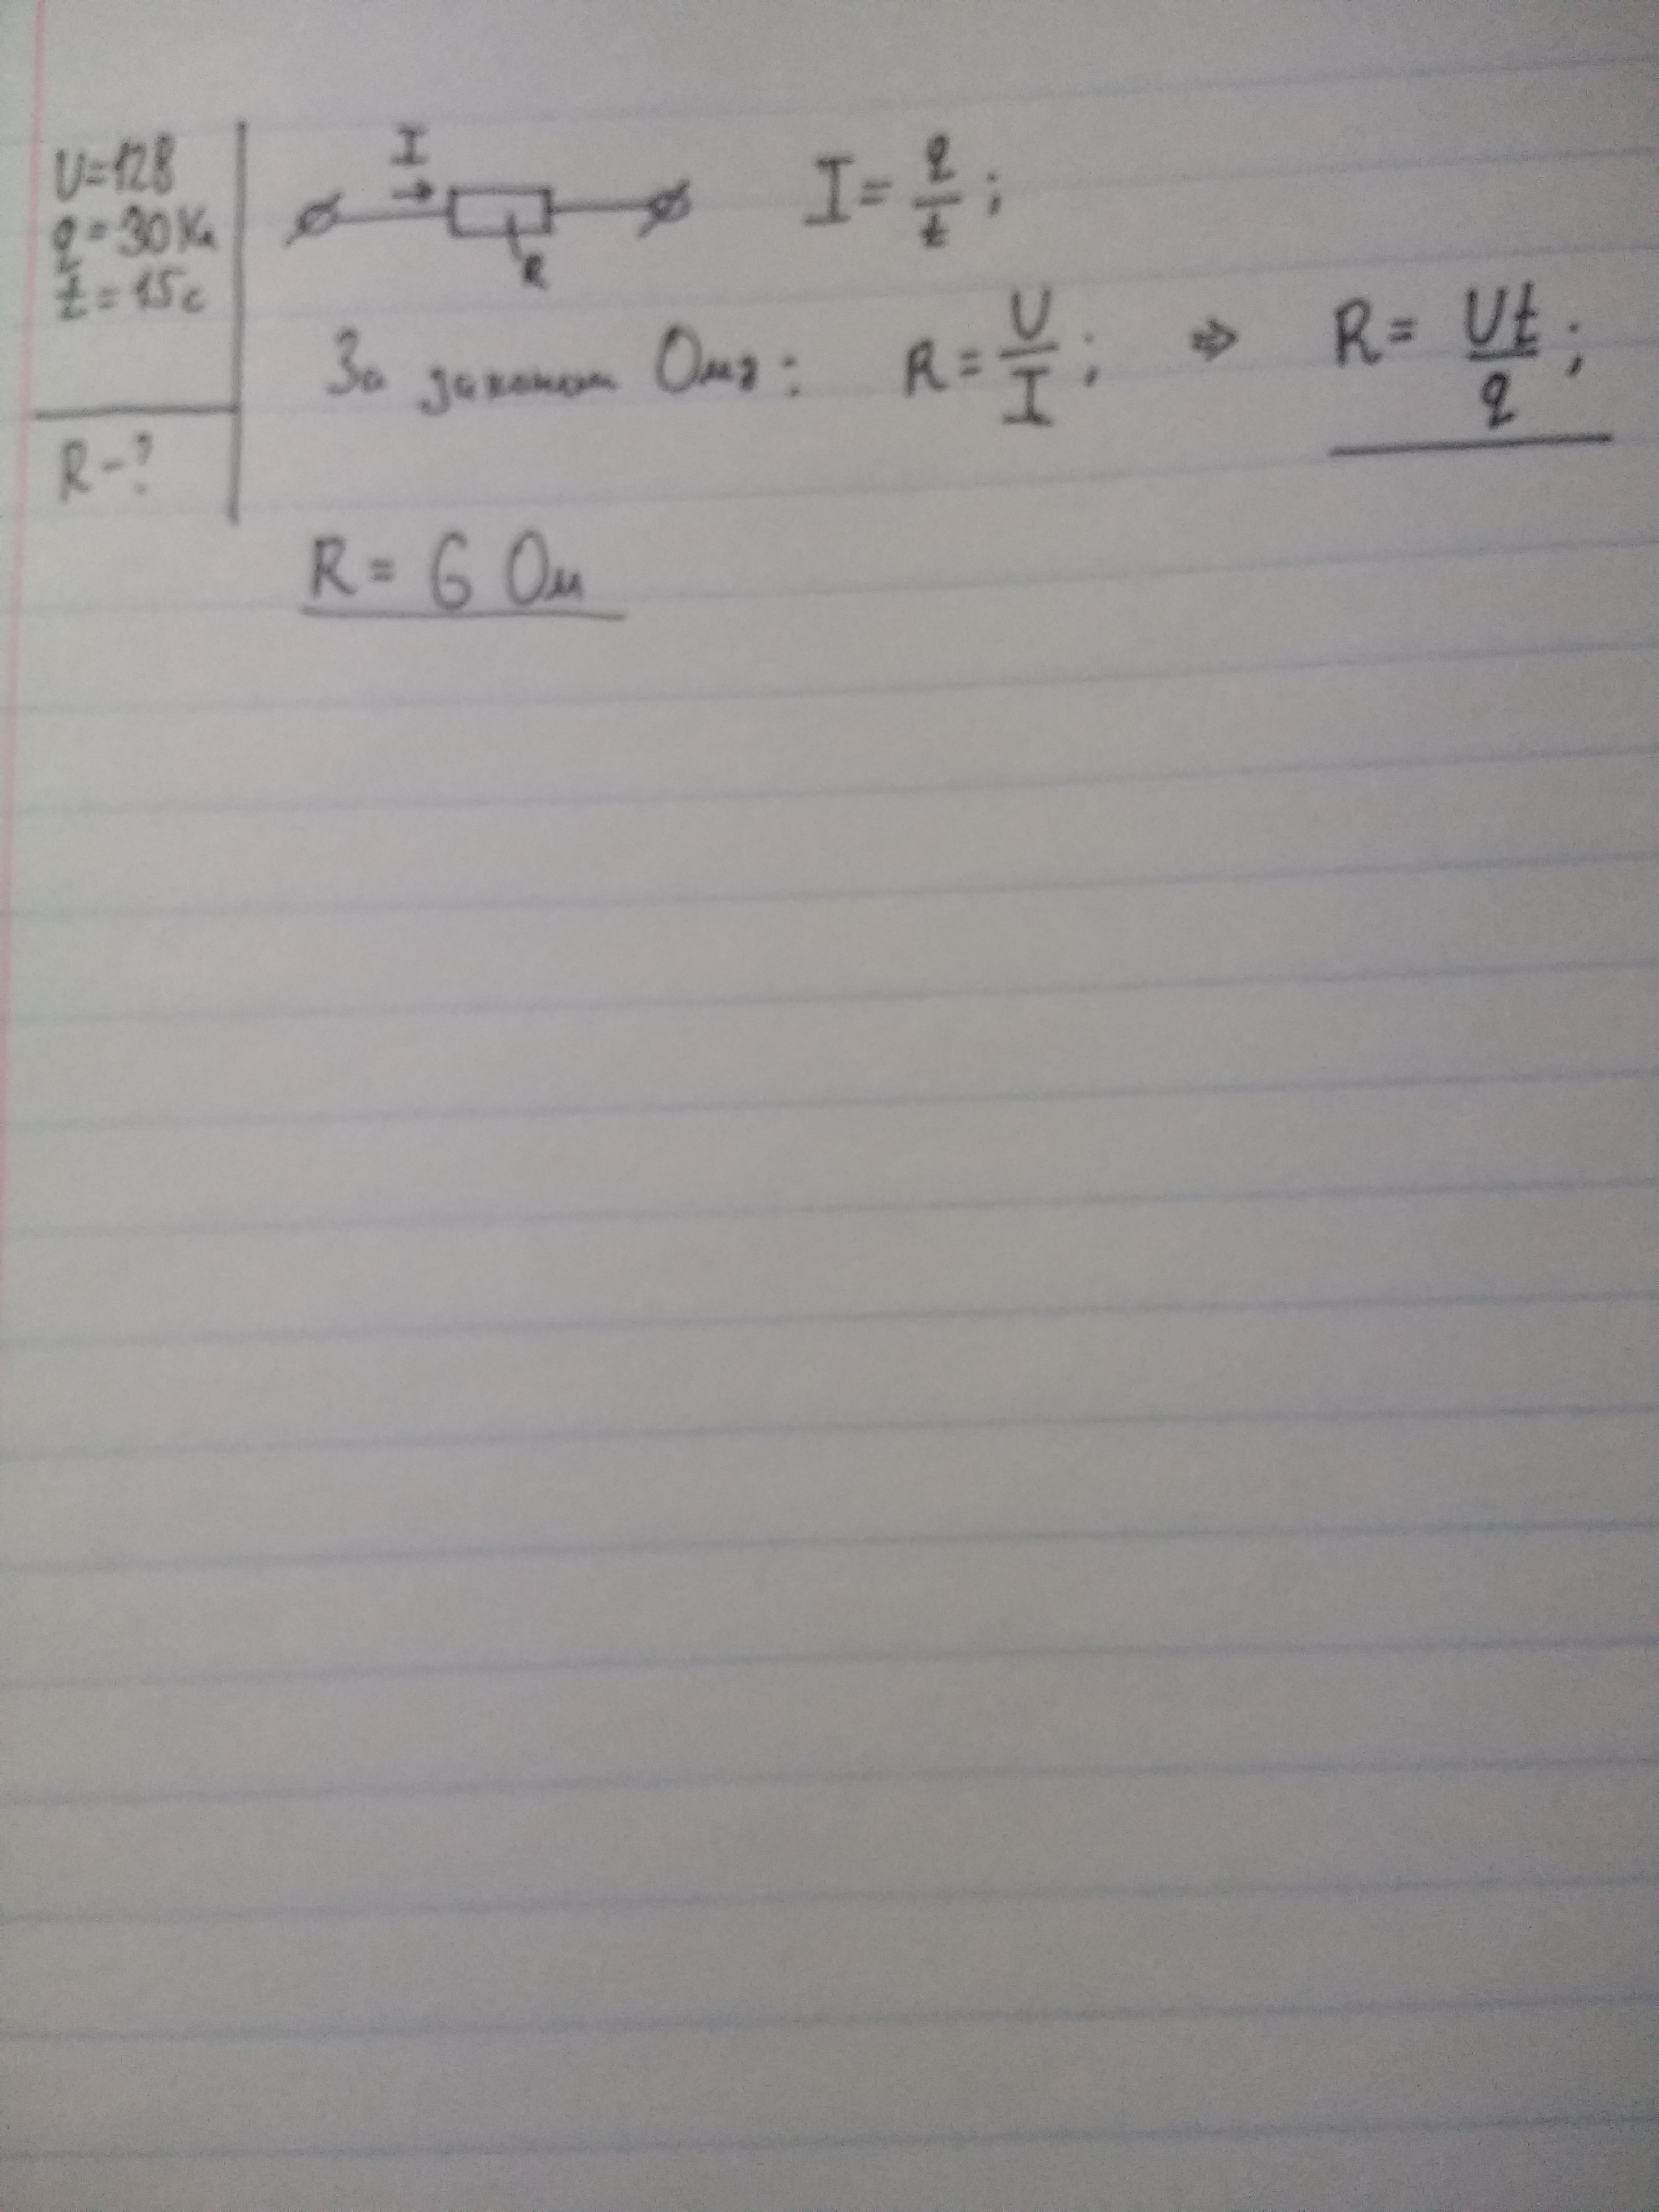 U=12В
q=30Кл
t=15с
R-?
I
R
I=q/t;
За законом Ома: R=U/I; ⇒ R=Ut/q;
R= 6 Ом